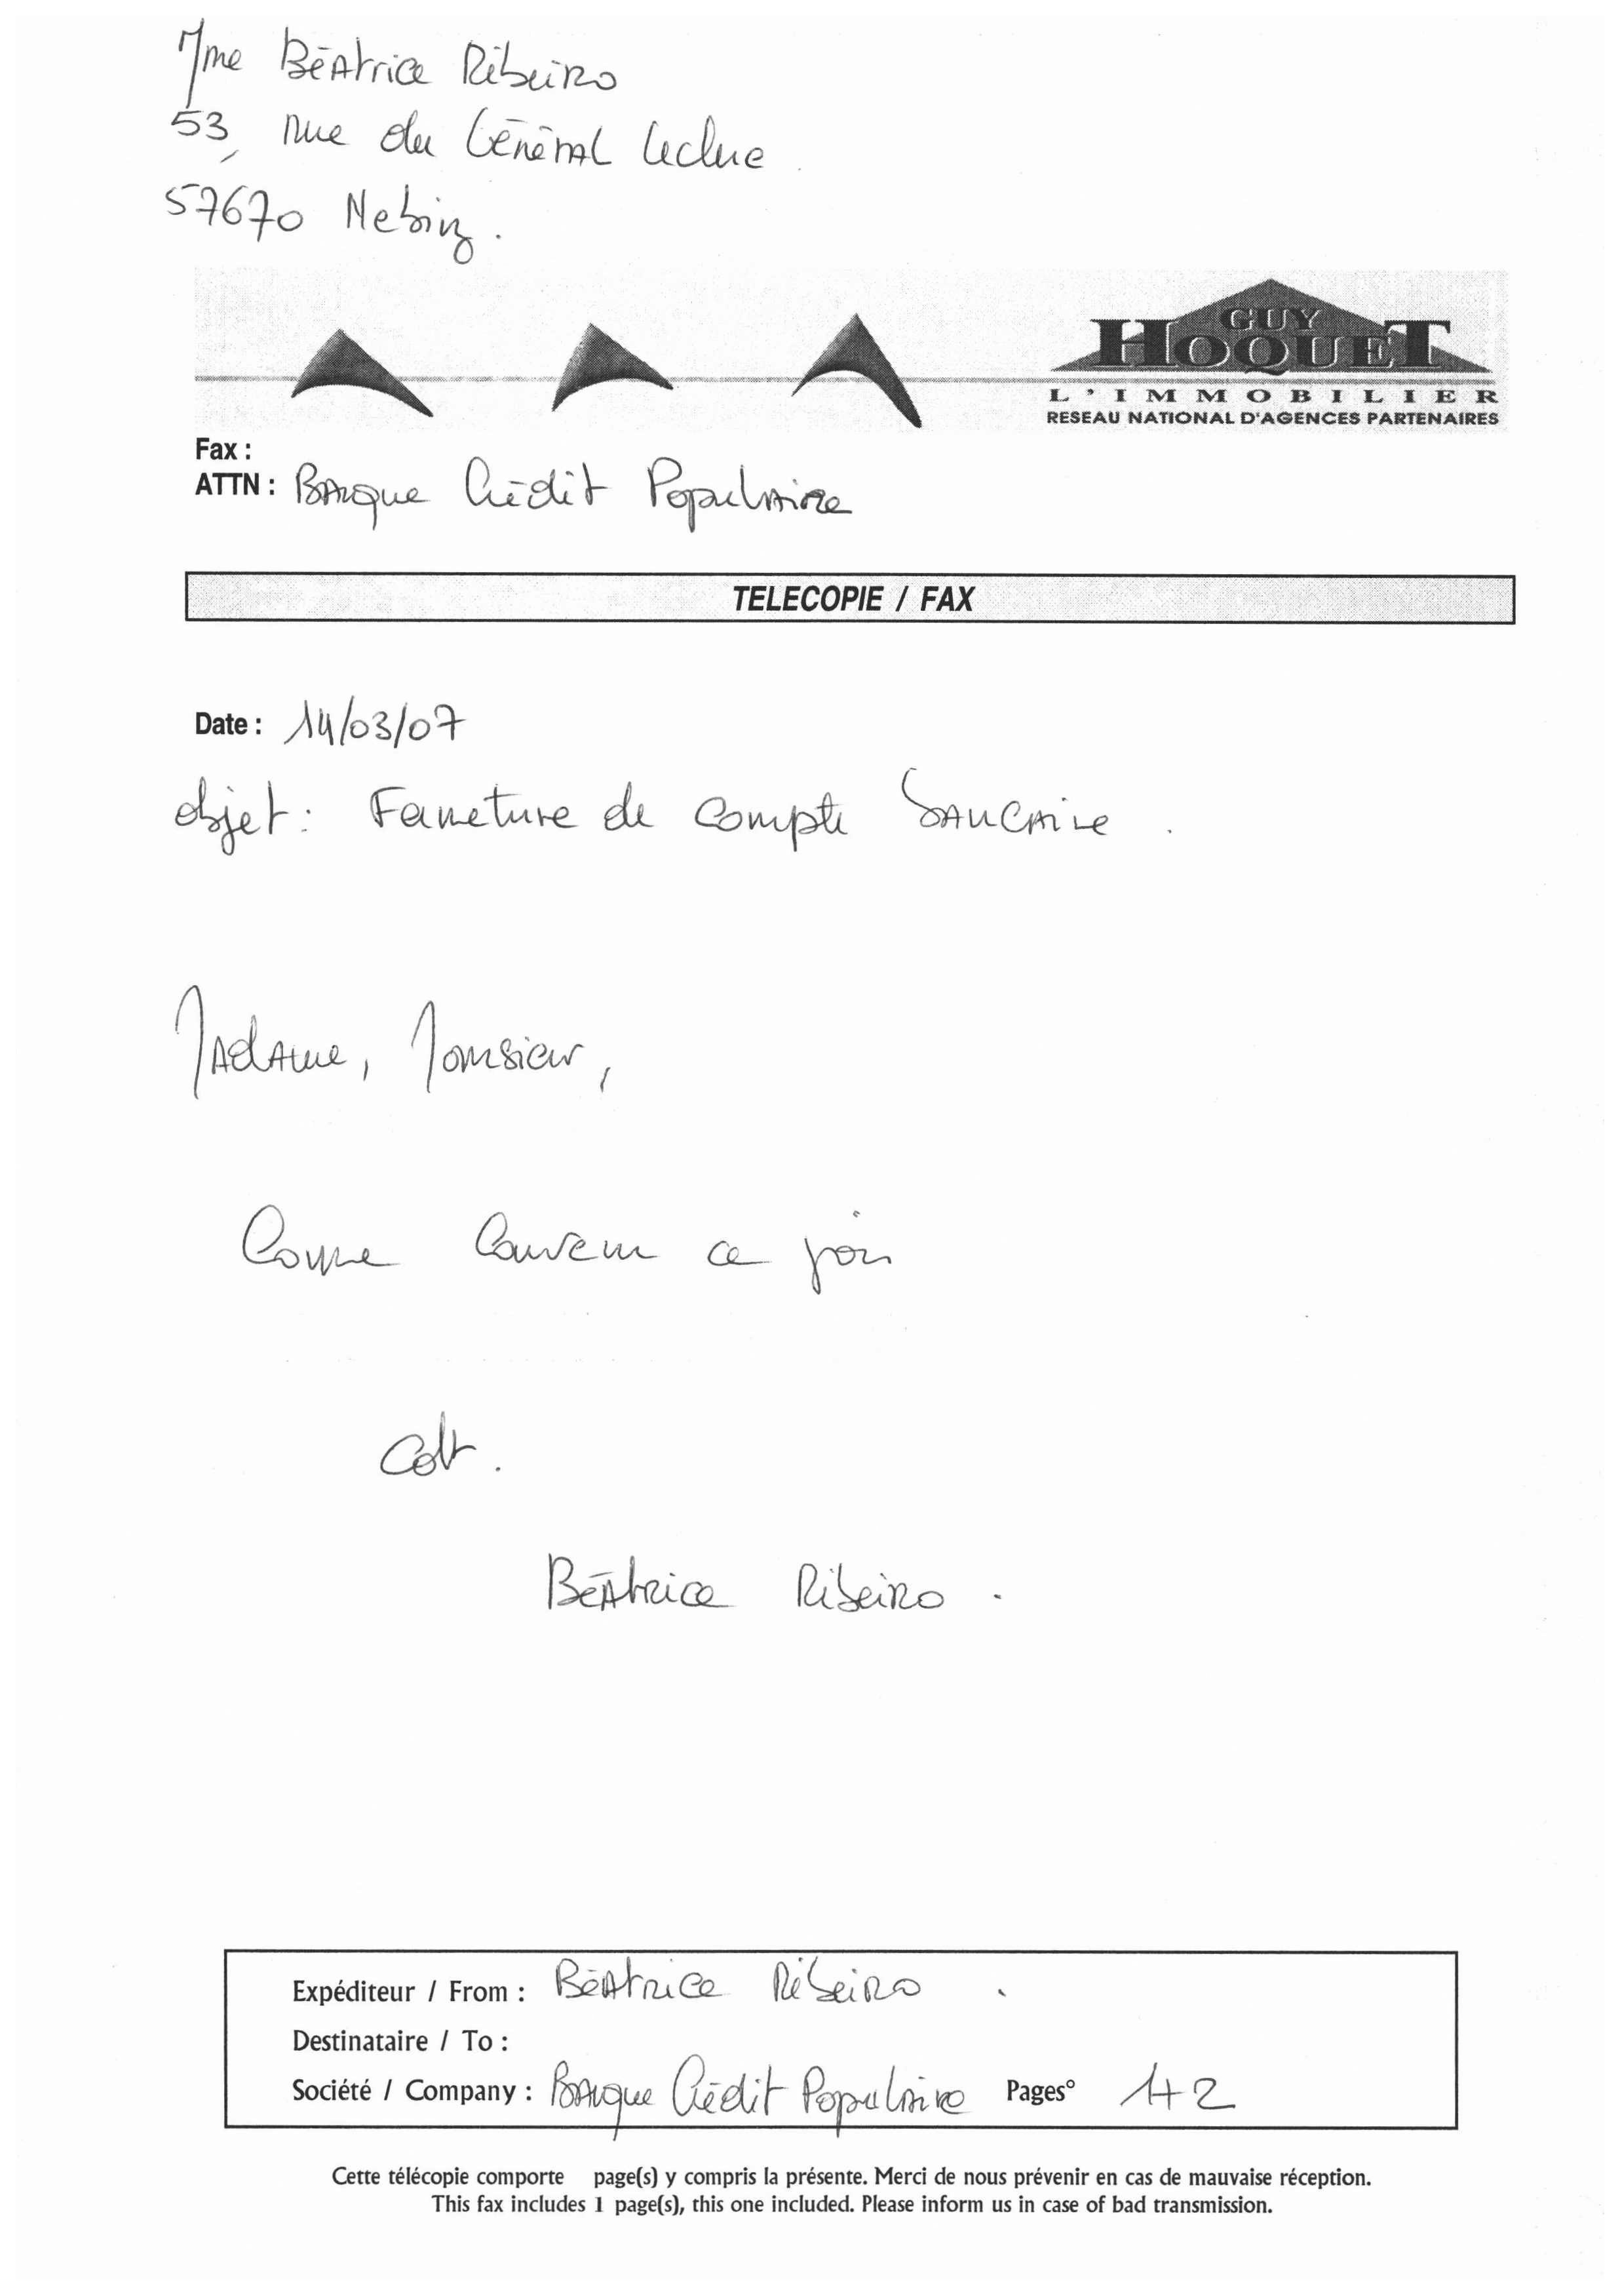 Mme Béatrice Ribeiro
53, rue du Général Leclerc
57670 Nebing.
GUY
HOQUET
L'IMMOBILIER
RESEAU NATIONAL D'AGENCES PARTENAIRES
Fax :
ATTN : Banque Crédit Populaire
TELECOPIE / FAX
Date : 14/03/07
Objet : Fermeture de compte bancaire.
Madame, Monsieur,
Comme convenu ce jour
Cdt.
Béatrice Ribeiro.
Expéditeur / From : Béatrice Ribeiro.
Destinataire / To :
Société / Company : Banque Crédit Populaire Pages° 1+2
Cette télécopie comporte page(s) y compris la présente. Merci de nous prévenir en cas de mauvaise réception.
This fax includes 1 page(s), this one included. Please inform us in case of bad transmission.